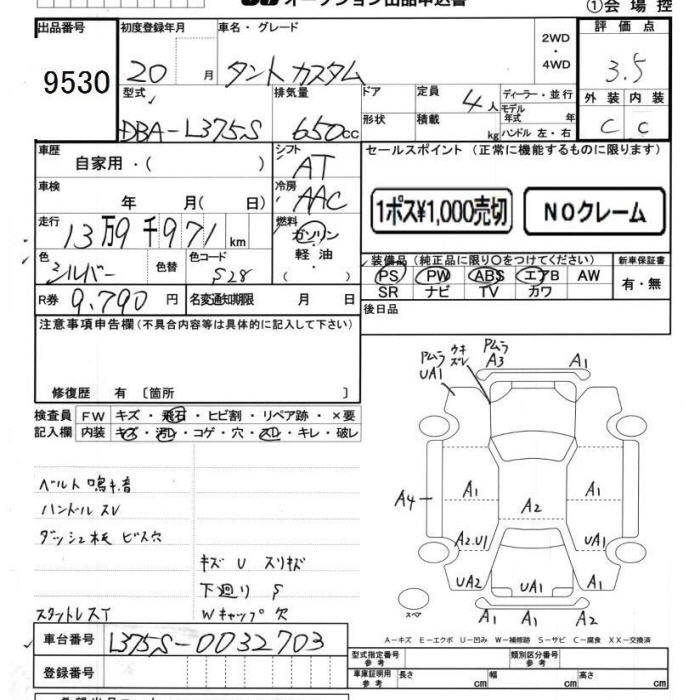 オークション出品申込書
①会場控
出品番号
9530
初度登録年月
20 月
車名・グレード
タント カスタム
2WD
・
4WD
評価点
3.5
外装 内装
C C
型式
DBA-L375S
排気量
650cc
ドア
形状
定員
4人
積載
kg
ディーラー・並行
モデル
年式 年
ハンドル 左・右
車歴
自家用・( )
シフト
AT
セールスポイント (正常に機能するものに限ります)
車検
年 月( 日)
冷房
AAC
1ポス¥1,000売切
NOクレーム
走行
13万9千971km
燃料
ガソリン
・
軽油
・
( )
色
シルバー
色替
色コード
S28
装備品 (純正品に限り○をつけてください)
PS PW ABS エアB AW
SR ナビ TV カワ
新車保証書
有・無
R券
9,790円
名変通知期限 月 日
後日品
注意事項申告欄(不具合内容等は具体的に記入して下さい)
修復歴 有 〔箇所 〕
検査員
記入欄
FW キズ・飛石・ヒビ割・リペア跡・×要
内装 キズ・汚レ・コゲ・穴・スレ・キレ・破レ
ベルト鳴キ音
ハンドル スレ
ダッシュ板 ビス穴
キズ U スリキズ
下廻り S
スタットレスT
Wキャップ欠
Pムラ
UA1
ウキ
ズレ
Pムラ
A3
A1
A4
A1
A2
A1
A2.U1
UA1
UA2
UA1
A1
A1
A1
A2
スペア
A-キズ E-エクボ U-凹み W-補修跡 S-サビ C-腐食 XX-交換済
車台番号
L375S-0032703
登録番号
型式指定番号
参考
類別区分番号
参考
車庫証明用
参考
長さ cm
幅 cm
高さ cm